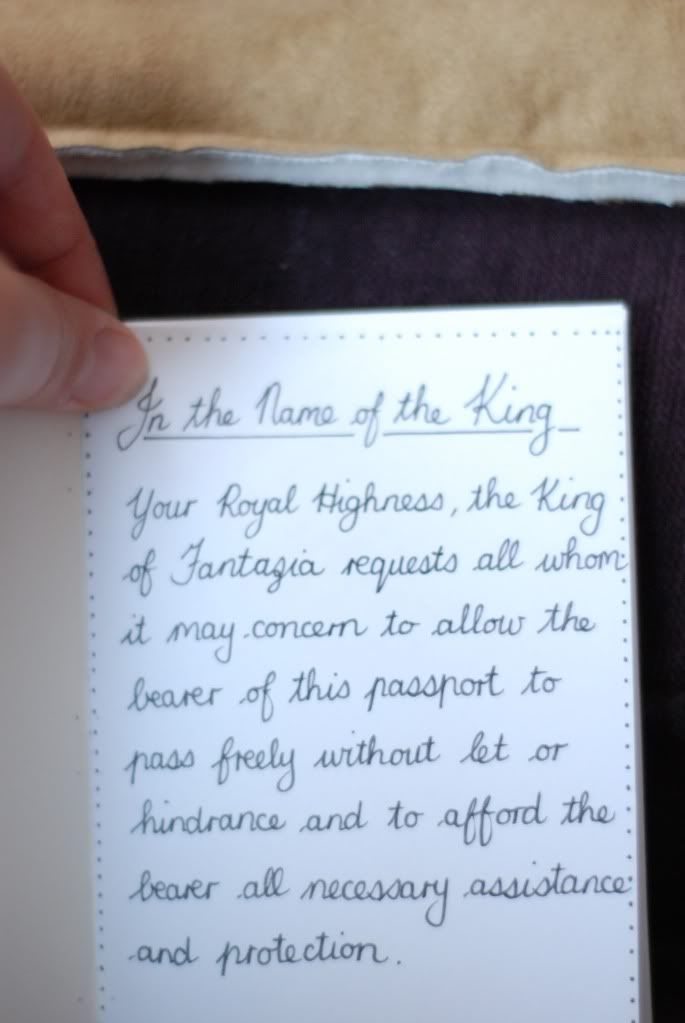 In the Name of the King
Your Royal Highness, the King
of Fantazia requests all whom
it may concern to allow the
bearer of this passport to
pass freely without let or
hindrance and to afford the
bearer all necessary assistance
and protection.